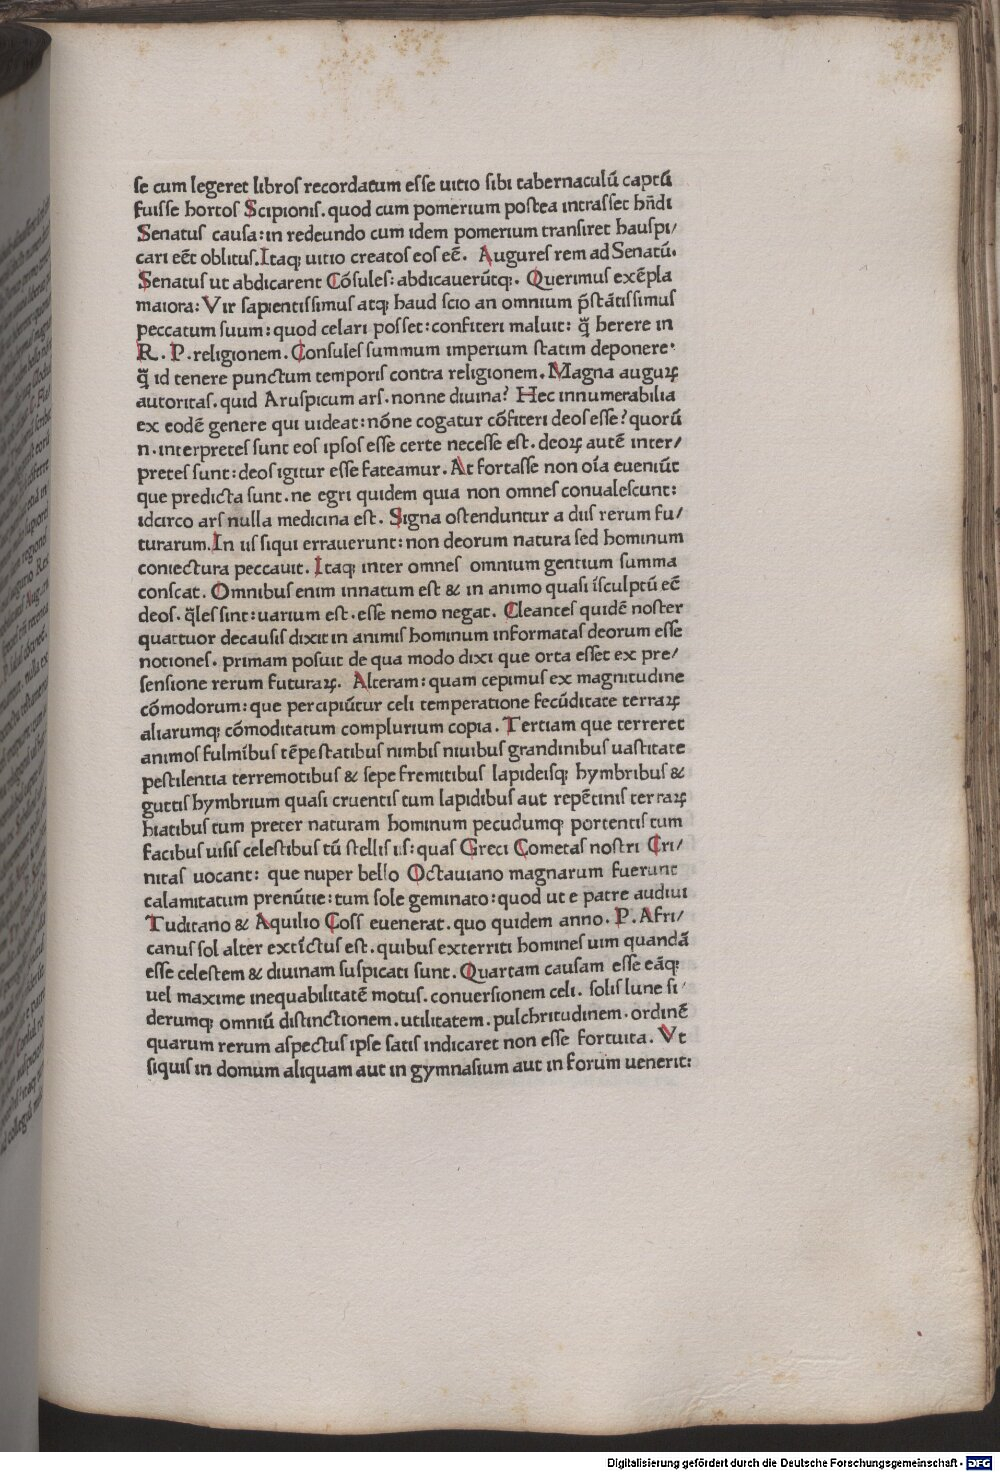 se cum legeret libros recordatum esse uitio sibi tabernaculū captū
fuisse hortos Scipionis. quod cum pomerium postea intrasset hn̄di
Senatus causa: in redeundo cum idem pomerium transiret hauspi/
cari eēt oblitus. Itaq; uitio creatos eos eē. Augures rem ad Senatū.
Senatus ut abdicarent Cōsules: abdicauerūtq;. Querimus exēpla
maiora: Vir sapientissimus atq; haud scio an omnium p̄stātissimus
peccatum suum: quod celari posset: confiteri maluit: q̄ herere in
R. P. religionem. Consules summum imperium statim deponere.
q̄ id tenere punctum temporis contra religionem. Magna auguꝝ
autoritas. quid Aruspicum ars. nonne diuina? Hec innumerabilia
ex eodē genere qui uideat: nōne cogatur cōfiteri deos esse? quorū
n. interpretes sunt eos ipsos esse certe necesse est. deoꝝ autē inter/
pretes sunt: deos igitur esse fateamur. At fortasse non oīa eueniūt
que predicta sunt. ne egri quidem quia non omnes conualescunt:
idcirco ars nulla medicina est. Signa ostenduntur a diis rerum fu/
turarum. In iis siqui errauerunt: non deorum natura sed hominum
coniectura peccauit. Itaq; inter omnes omnium gentium summa
conscat. Omnibus enim innatum est & in animo quasi īsculptū eē
deos. q̄les sint: uarium est. esse nemo negat. Cleantes quidē noster
quattuor decausis dixit in animis hominum informatas deorum esse
notiones. primam posuit de qua modo dixi que orta esset ex pre/
sensione rerum futuraꝝ. Alteram: quam cepimus ex magnitudine
cōmodorum: que percipiūtur celi temperatione fecūditate terraꝝ
aliarumq; cōmoditatum complurium copia. Tertiam que terreret
animos fulmībus tēpestatibus nimbis niuibus grandinibus uastitate
pestilentia terremotibus & sepe fremitibus lapideisq; hymbribus &
guttis hymbrium quasi cruentis tum lapidibus aut repētinis terraꝝ
hiatibus tum preter naturam hominum pecudumq; portentis tum
facibus uisis celestibus tū stellis iis: quas Greci Cometas nostri Cri/
nitas uocant: que nuper bello Octauiano magnarum fuerunt
calamitatum prenūtie: tum sole geminato: quod ut e patre audiui
Tuditano & Aquilio Coss euenerat. quo quidem anno. P. Afri/
canus sol alter extīctus est. quibus exterriti homines uim quandā
esse celestem & diuinam suspicati sunt. Quartam causam esse eāq;
uel maxime inequabilitatē motus. conuersionem celi. solis lune si/
derumq; omniū distinctionem. utilitatem. pulchritudinem. ordinē
quarum rerum aspectus ipse satis indicaret non esse fortuita. Vt
siquis in domum aliquam aut in gymnasium aut in forum uenerit:
Digitalisierung gefördert durch die Deutsche Forschungsgemeinschaft - DFG